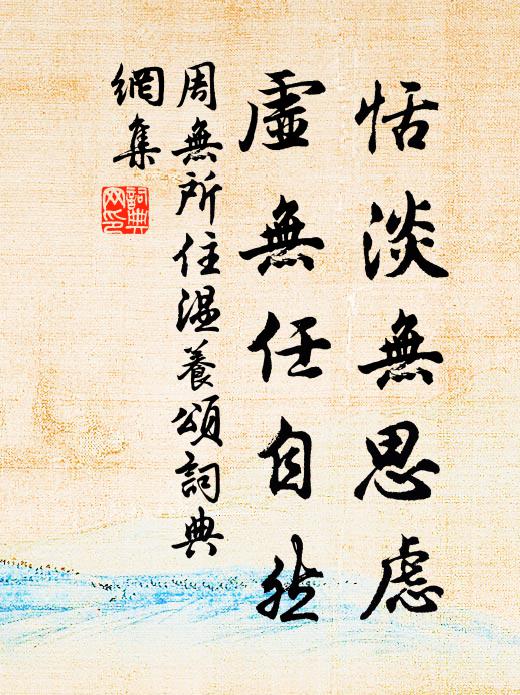 恬淡無思慮
虛無任自然
周無所住溫養頌詞典
網集
詞典
网印